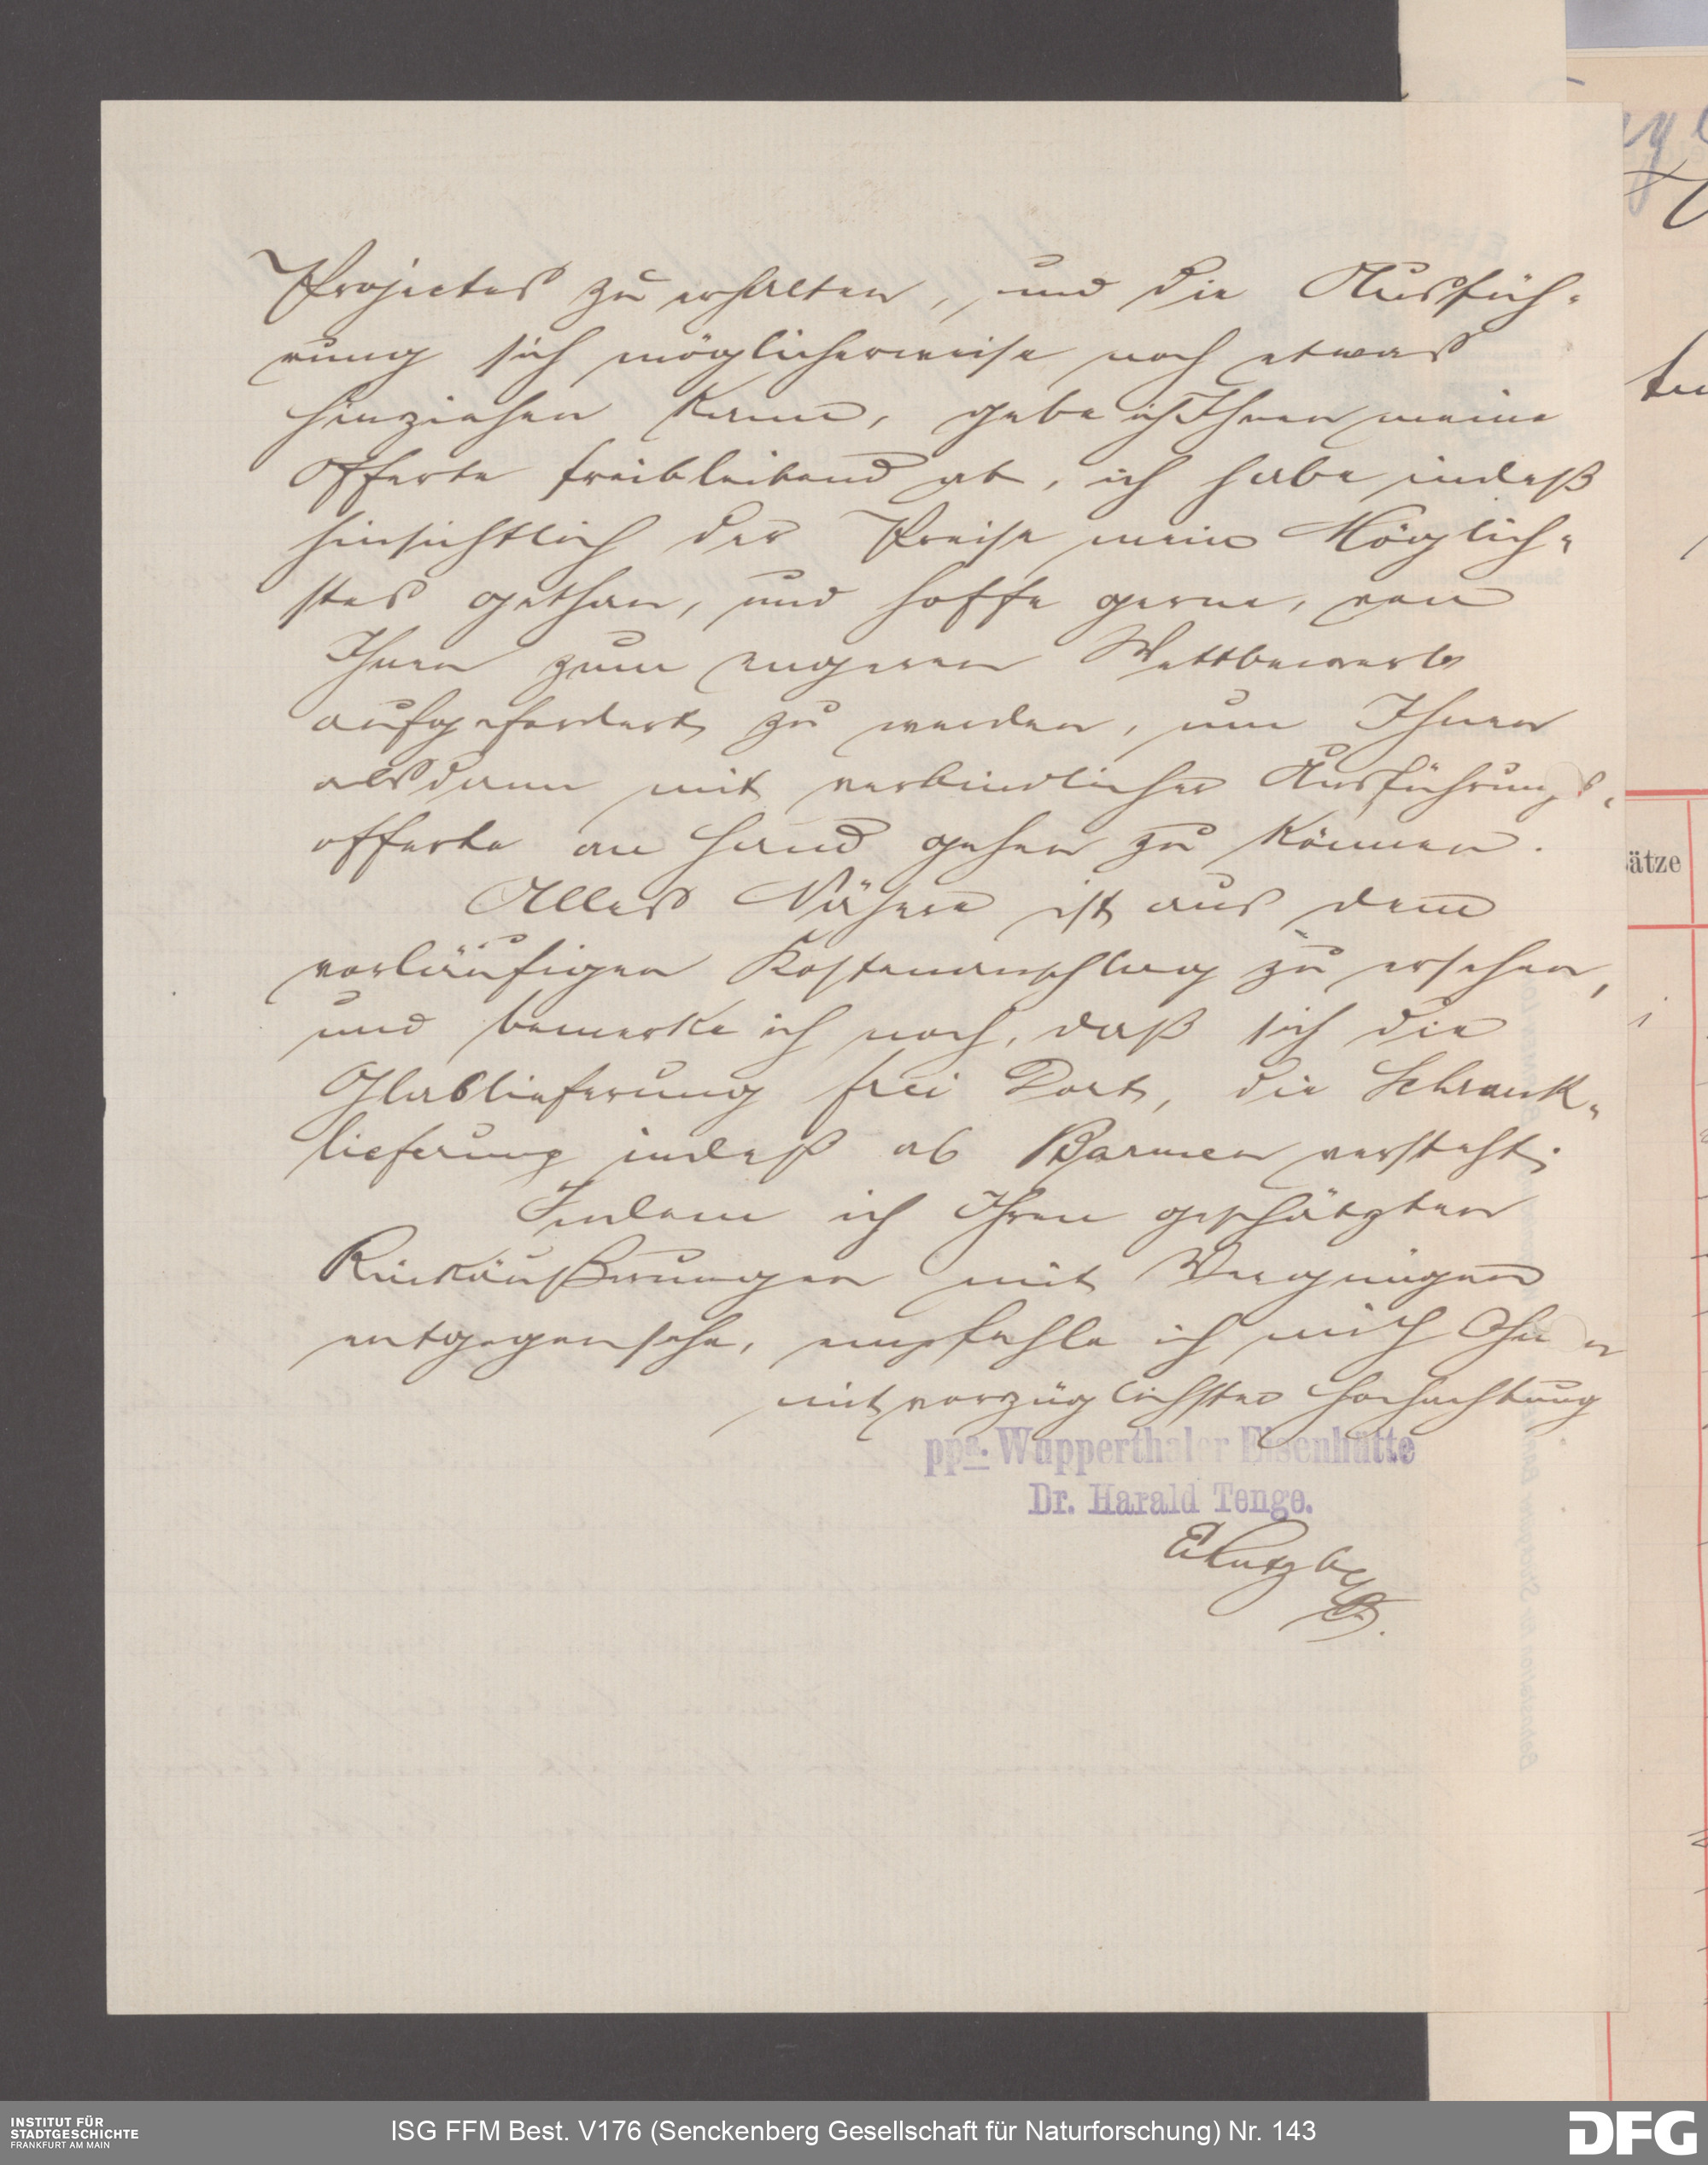 Projectes zu erhalten, und die Ausfüh-
rung sich möglicherweise noch etwas
hinziehen kann, gebe ich Ihnen meine
Offerte freibleibend ab, ich habe indeß
hinsichtlich der Preise mein Möglich-
stes gethan, und hoffe gerne, von
Ihnen zum engeren Wettbewerb
aufgefordert zu werden, um Ihnen
alsdann mit verbindlicher Ausführungs-
offerte an Hand gehen zu können.
Alles Nähere ist aus dem
vorläufigen Kostenanschlag zu ersehen,
und bemerke ich noch, daß sich die
Glaslieferung frei Dort, die Schrank-
lieferung indeß ab Barmen versteht.
Indem ich Ihren geschätzten
Rückäußerungen mit Vergnügen
entgegensehe, empfehle ich mich Ihnen
mit vorzüglichster Hochachtung
ppa. Wupperthaler Eisenhütte
Dr. Harald Tenge.
ätze
INSTITUT FÜR
STADTGESCHICHTE
FRANKFURT AM MAIN
ISG FFM Best. V176 (Senckenberg Gesellschaft für Naturforschung) Nr. 143
DFG